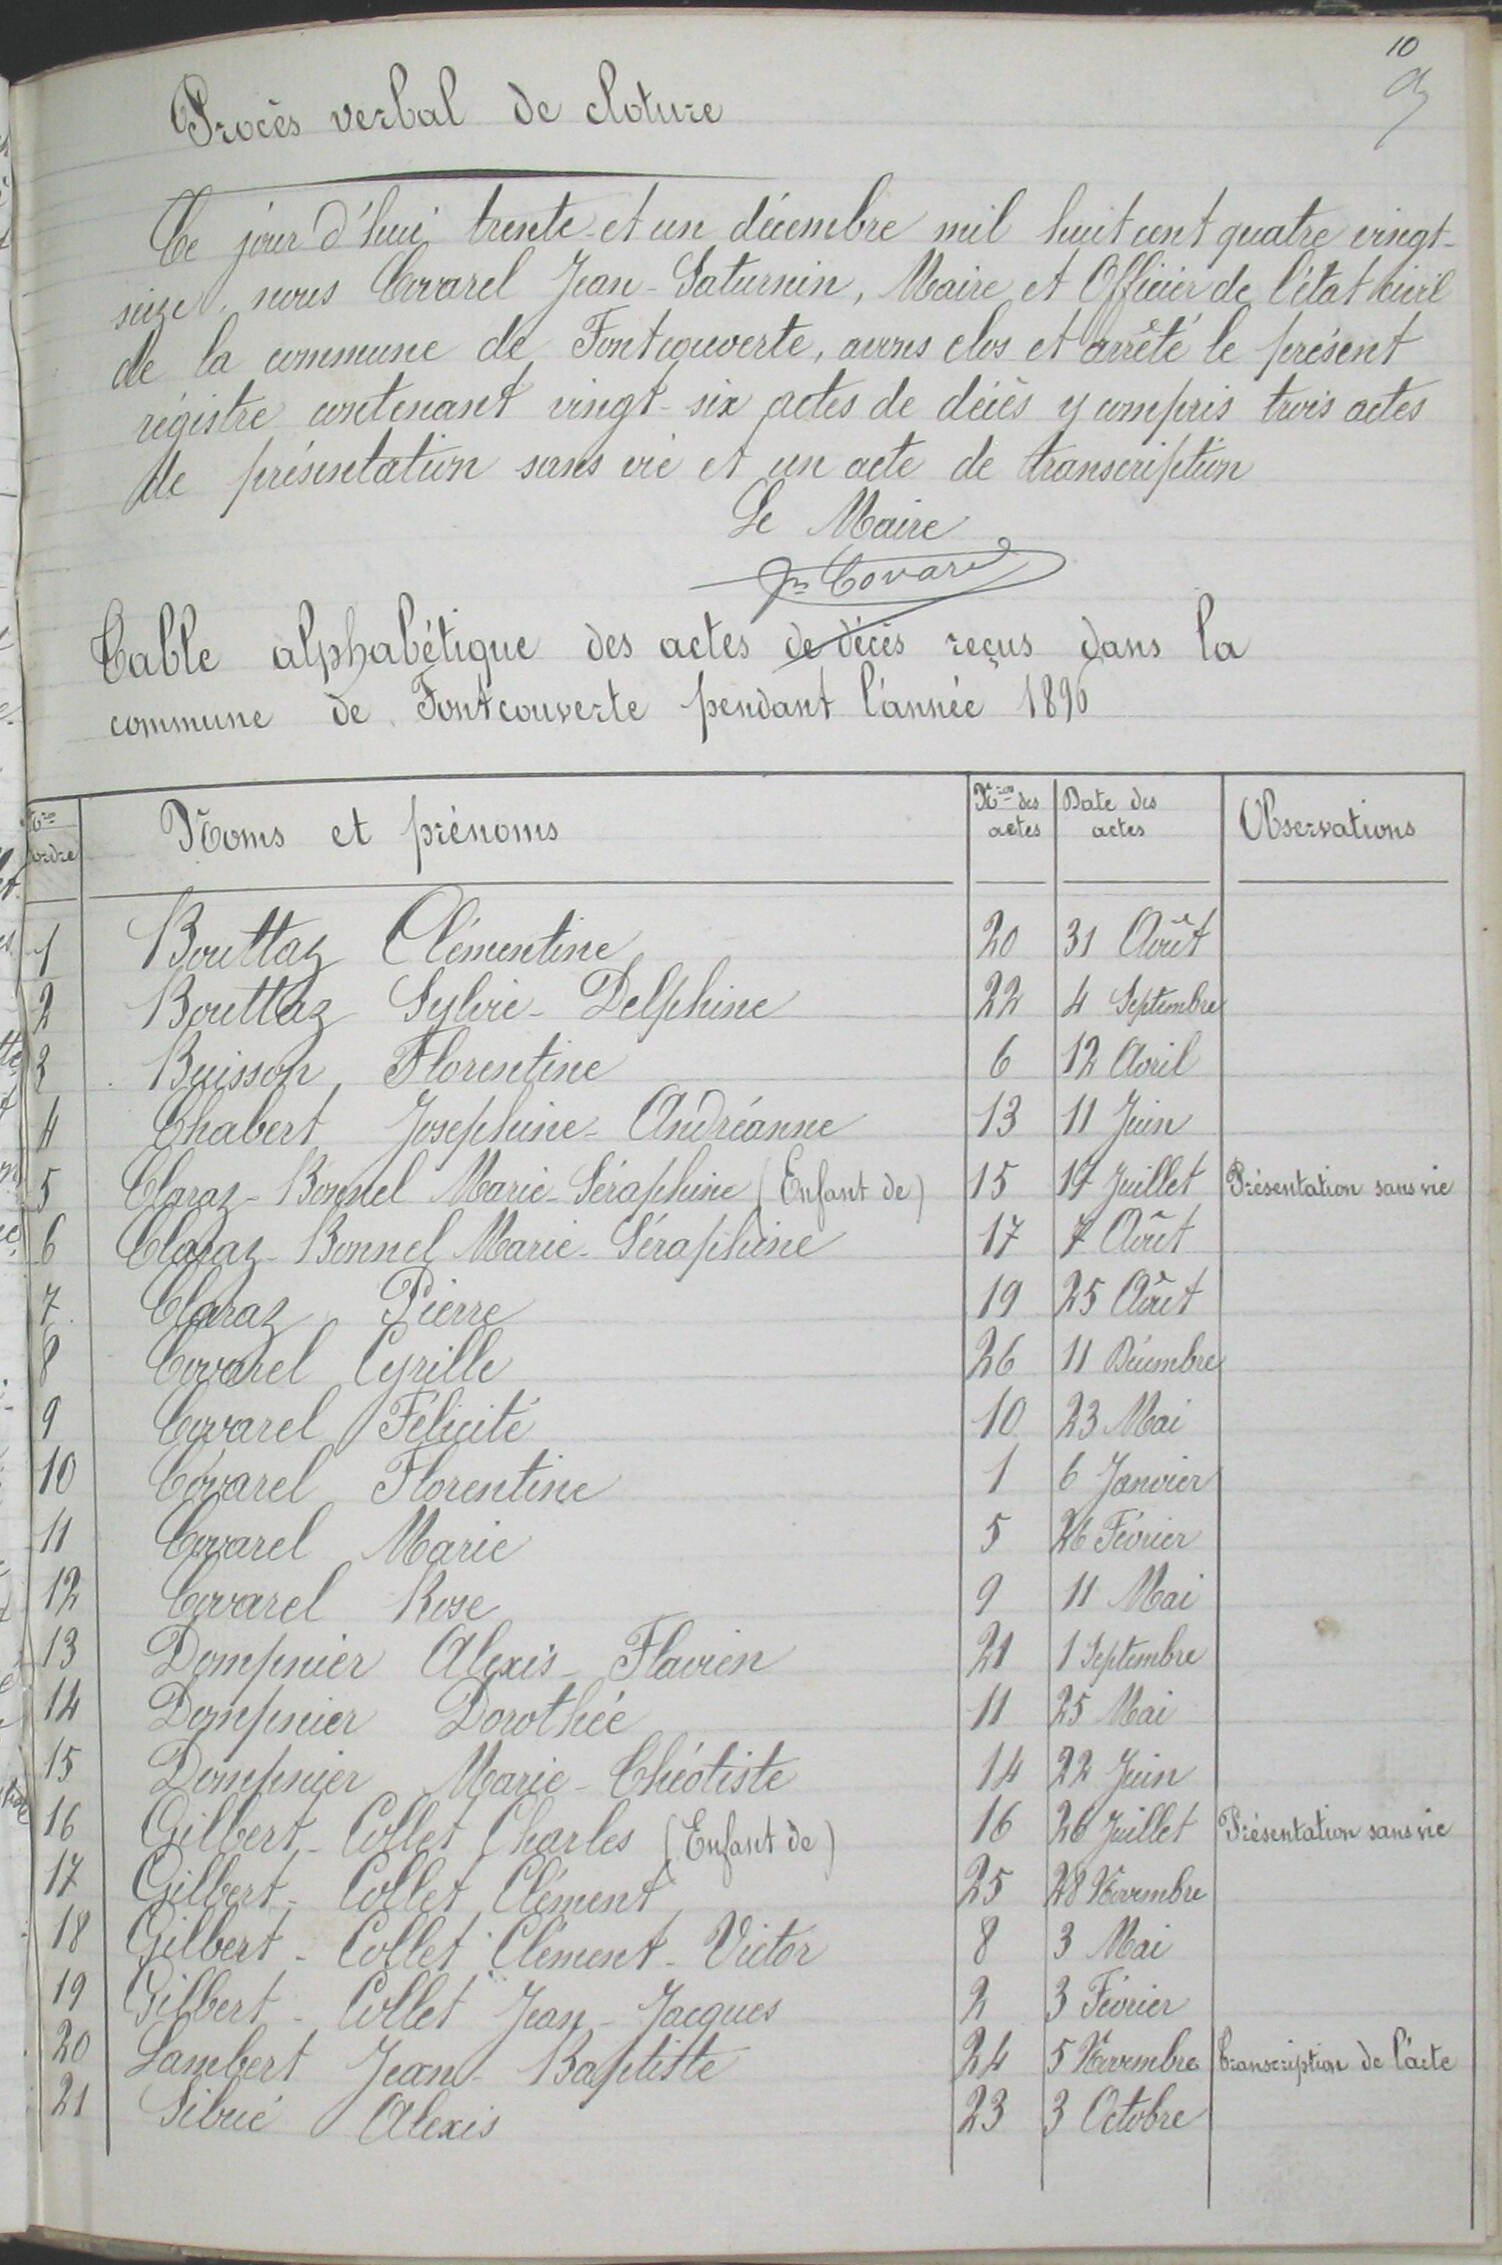 10
Procès verbal de cloture
Ce jour d'hui trente-et un décembre mil huit cent quatre vingt-
seize, nous Covarel Jean-Saturnin, Maire et Officier de l'état civil
de la commune de Fontcouverte, avons clos et arrêté le présent
régistre contenant vingt-six actes de décès y compris trois actes
de présentation sans vie et un acte de transcription
Le Maire
Jn Covarel
Table alphabétique des actes de décès reçus dans la
commune de Fontcouverte pendant l'année 1896
Nros ordre Noms et prénoms Nros des actes Date des actes Observations
1 Bouttaz Clémentine 20 31 Août
2 Bouttaz Sylvie-Delphine 22 4 Septembre
3 Buisson Florentine 6 12 Avril
4 Chabert Josephine-Andréanne 13 11 Juin
5 Claraz-Bonnel Marie-Séraphine (Enfant de) 15 17 Juillet Présentation sans vie
6 Claraz-Bonnel Marie-Séraphine 17 7 Août
7 Claraz Pierre 19 25 Août
8 Covarel Cyrille 26 11 Décembre
9 Covarel Félicité 10 23 Mai
10 Covarel Florentine 1 6 Janvier
11 Covarel Marie 5 26 Février
12 Covarel Rose 9 11 Mai
13 Dompnier Alexis-Flavien 21 1 Septembre
14 Dompnier Dorothée 11 25 Mai
15 Dompnier Marie-Chéotiste 14 22 Juin
16 Gilbert-Collet Charles (Enfant de) 16 26 Juillet Présentation sans vie
17 Gilbert-Collet Clément 25 28 Novembre
18 Gilbert-Collet Clément-Victor 8 3 Mai
19 Gilbert-Collet Jean-Jacques 2 3 Février
20 Lambert Jean-Baptiste 24 5 Novembre Transcription de l'acte
21 Sibué Alexis 23 3 Octobre